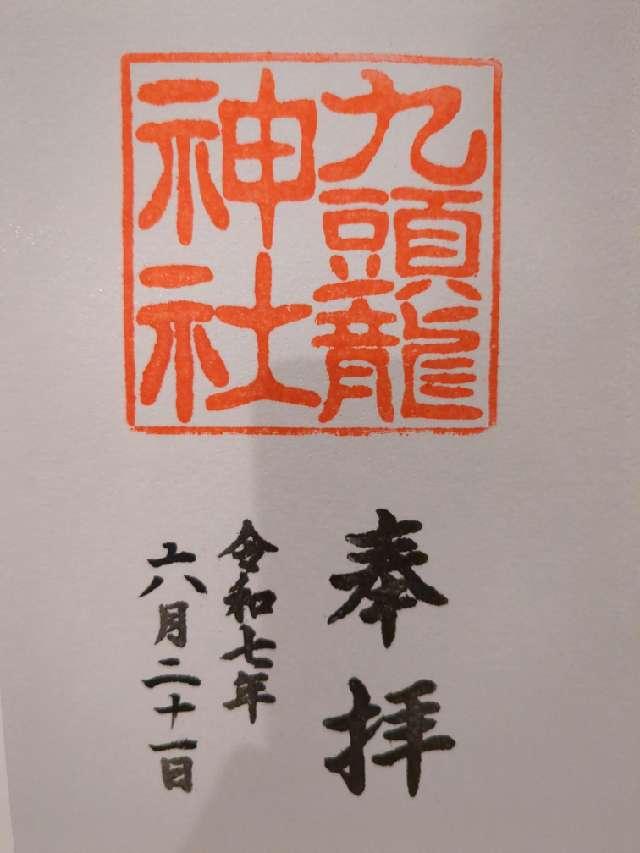 九頭龍
神社
奉拝
令和七年
六月二十一日